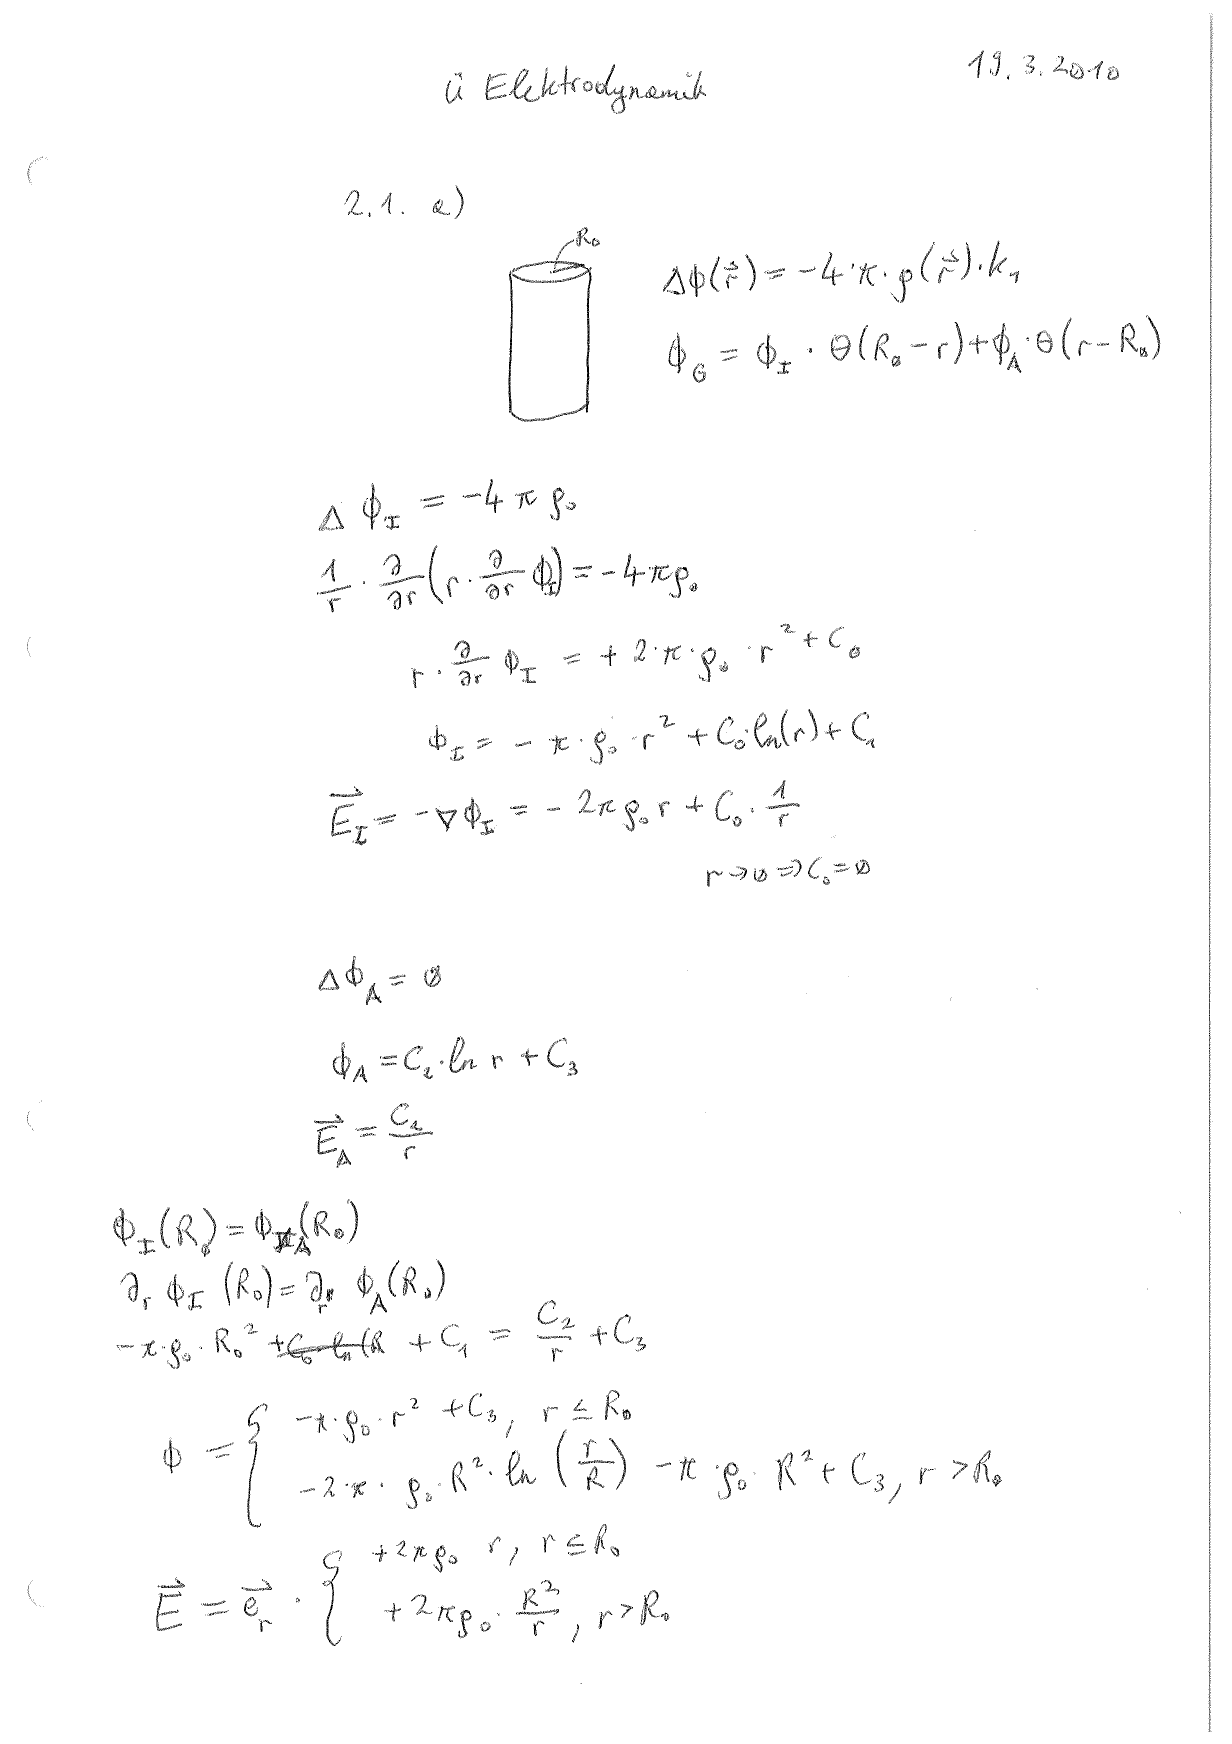 Ü Elektrodynamik
19.3.2010
2.1. a)
R₀
Δϕ(r⃗) = -4·π·ρ(r⃗)·k₁
ϕ_G = ϕ_I · Θ(R₀-r)+ϕ_A·Θ(r-R₀)
Δ ϕ_I = -4 π ρ₀
1/r · ∂/∂r (r · ∂/∂r ϕ_I) = -4πρ₀
r · ∂/∂r ϕ_I = + 2·π·ρ₀ · r² + C₀
ϕ_I = - π·ρ₀ · r² + C₀·ln(r) + C₁
E⃗_I = -∇ϕ_I = - 2πρ₀ r + C₀ · 1/r
r→0 ⇒ C₀=0
Δϕ_A = 0
ϕ_A = C₂·ln r + C₃
E⃗_A = C₂/r
ϕ_I(R₀) = ϕ_A(R₀)
∂_r ϕ_I (R₀) = ∂_r ϕ_A(R₀)
-π·ρ₀·R₀² +C₀ ln(R + C₁ = C₂/r + C₃
ϕ = { -π·ρ₀·r² + C₃, r ≤ R₀
-2·π·ρ₀·R²·ln (r/R) -π·ρ₀·R² + C₃, r > R₀
E⃗ = e⃗_r · { +2πρ₀ r, r ≤ R₀
+2πρ₀· R²/r, r > R₀